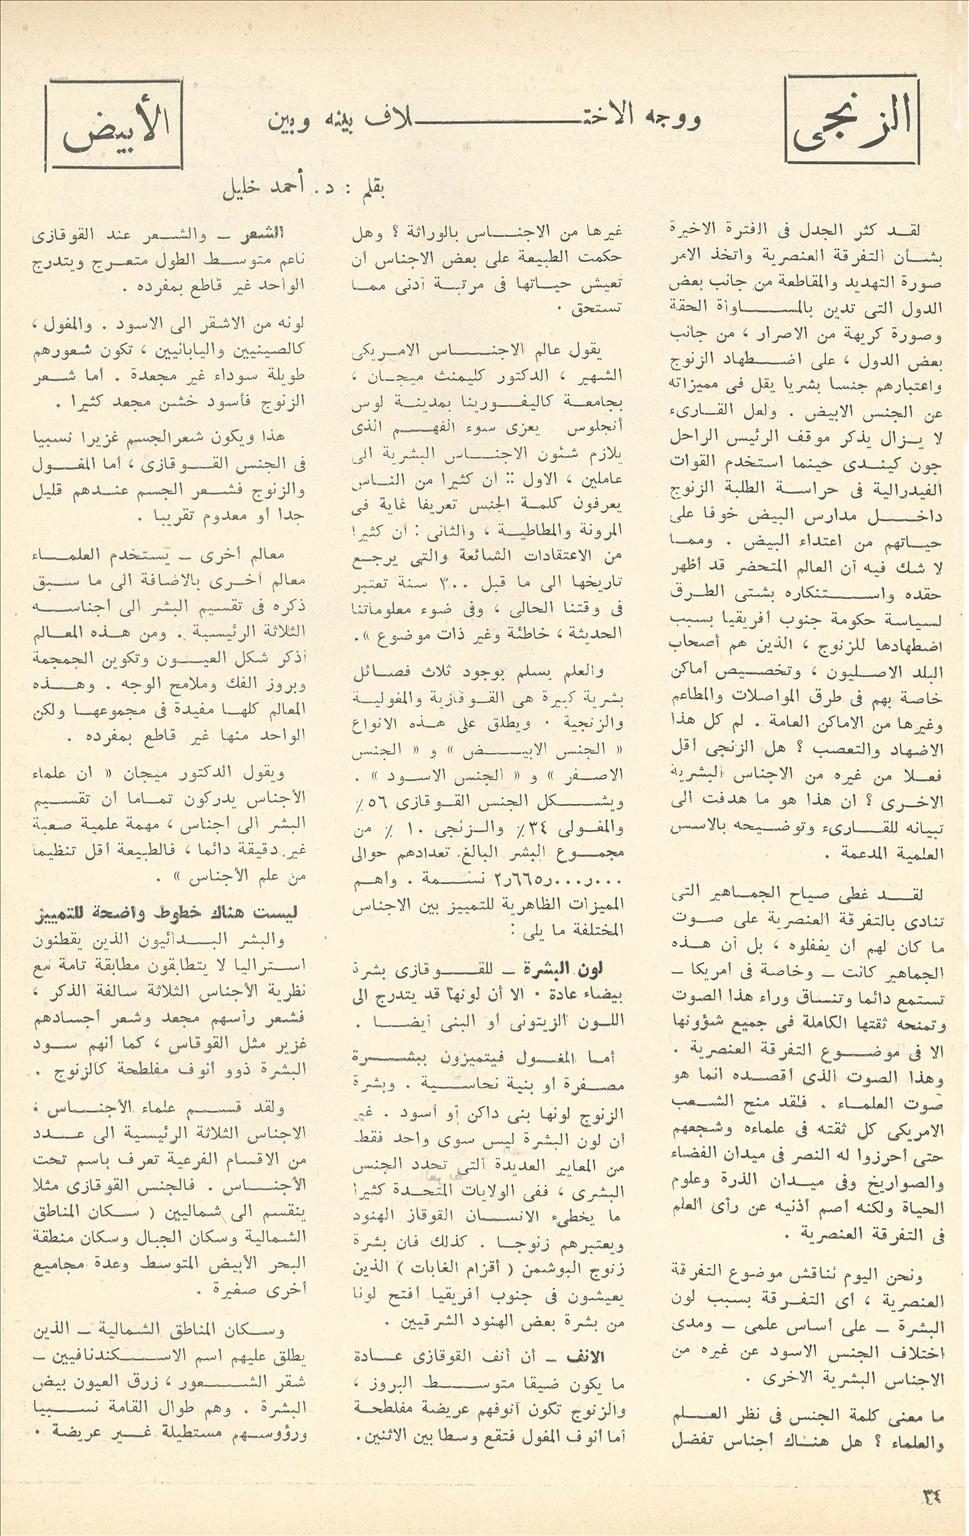 الزنجى
ووجه الاختـــلاف بينه وبين
الأبيض
بقلم : د. أحمد خليل
لقد كثر الجدل فى الفترة الاخيرة
بشأن التفرقة العنصرية واتخذ الامر
صورة التهديد والمقاطعة من جانب بعض
الدول التى تدين بالمساواة الحقة
وصورة كريهة من الاصرار ، من جانب
بعض الدول ، على اضطهاد الزنوج
واعتبارهم جنسا بشريا يقل فى مميزاته
عن الجنس الابيض . ولعل القارىء
لا يزال يذكر موقف الرئيس الراحل
جون كيندى حينما استخدم القوات
الفيدرالية فى حراسة الطلبة الزنوج
داخل مدارس البيض خوفا على
حياتهم من اعتداء البيض . ومما
لا شك فيه أن العالم المتحضر قد أظهر
حقده واستنكاره بشتى الطرق
لسياسة حكومة جنوب أفريقيا بسبب
اضطهادها للزنوج ، الذين هم أصحاب
البلد الاصليون ، وتخصيص أماكن
خاصة بهم فى طرق المواصلات والمطاعم
وغيرها من الاماكن العامة . لم كل هذا
الاضهاد والتعصب ؟ هل الزنجى أقل
فعلا من غيره من الاجناس البشرية
الاخرى ؟ ان هذا هو ما هدفت الى
تبيانه للقارىء وتوضيحه بالاسس
العلمية المدعمة .
لقد غطى صياح الجماهير التى
تنادى بالتفرقة العنصرية على صوت
ما كان لهم أن يغفلوه ، بل أن هذه
الجماهير كانت – وخاصة فى أمريكا –
تستمع دائما وتنساق وراء هذا الصوت
وتمنحه ثقتها الكاملة فى جميع شؤونها
الا فى موضوع التفرقة العنصرية .
وهذا الصوت الذى أقصده انما هو
صوت العلماء . فلقد منح الشعب
الامريكى كل ثقته فى علماءه وشجعهم
حتى أحرزوا له النصر فى ميدان الفضاء
والصواريخ وفى ميدان الذرة وعلوم
الحياة ولكنه أصم أذنيه عن رأى العلم
فى التفرقة العنصرية .
ونحن اليوم نناقش موضوع التفرقة
العنصرية ، أى التفرقة بسبب لون
البشرة – على أساس علمى – ومدى
اختلاف الجنس الاسود عن غيره من
الاجناس البشرية الاخرى .
ما معنى كلمة الجنس فى نظر العلم
والعلماء ؟ هل هناك أجناس تفضل
غيرها من الاجناس بالوراثة ؟ وهل
حكمت الطبيعة على بعض الاجناس أن
تعيش حياتها فى مرتبة أدنى مما
تستحق .
يقول عالم الاجناس الامريكى
الشهير ، الدكتور كليمنث ميجان ،
بجامعة كاليفورينا بمدينة لوس
أنجلوس يعزى سوء الفهم الذى
يلازم شئون الاجناس البشرية الى
عاملين ، الاول :: أن كثيرا من الناس
يعرفون كلمة الجنس تعريفا غاية فى
المرونة والمطاطية ، والثانى : أن كثيرا
من الاعتقادات الشائعة والتى يرجع
تاريخها الى ما قبل ٣٠٠ سنة تعتبر
فى وقتنا الحالى ، وفى ضوء معلوماتنا
الحديثة ، خاطئة وغير ذات موضوع ».
والعلم يسلم بوجود ثلاث فصائل
بشرية كبيرة هى القوقازية والمغولية
والزنجية . ويطلق على هذه الانواع
« الجنس الابيض » و « الجنس
الاصفر » و « الجنس الاسود » .
ويشكل الجنس القوقازى ٥٦٪
والمغولى ٣٤٪ والزنجى ١٠ ٪ من
مجموع البشر البالغ تعدادهم حوالى
٢ر٦٦٥ر٠٠٠ر٠٠٠ نسمة . وأهم
المميزات الظاهرية للتمييز بين الاجناس
المختلفة ما يلى :
لون البشرة – للقوقازى بشرة
بيضاء عادة . الا أن لونها قد يتدرج الى
اللون الزيتونى أو البنى أيضا .
أما المغول فيتميزون ببشرة
مصفرة أو بنية نحاسية . وبشرة
الزنوج لونها بنى داكن أو أسود . غير
أن لون البشرة ليس سوى واحد فقط
من المعايير العديدة التى تحدد الجنس
البشرى ، ففى الولايات المتحدة كثيرا
ما يخطىء الانسان القوقاز الهنود
ويعتبرهم زنوجا . كذلك فان بشرة
زنوج البوشمن ( أقزام الغابات ) الذين
يعيشون فى جنوب أفريقيا أفتح لونا
من بشرة بعض الهنود الشرقيين .
الانف – أن أنف القوقازى عادة
ما يكون ضيقا متوسط البروز ،
والزنوج تكون أنوفهم عريضة مفلطحة
أما أنوف المغول فتقع وسطا بين الاثنين.
الشعر – والشعر عند القوقازى
ناعم متوسط الطول متعرج ويتدرج
الواحد غير قاطع بمفرده .
لونه من الاشقر الى الاسود . والمغول ،
كالصينيين واليابانيين ، تكون شعورهم
طويلة سوداء غير مجعدة . أما شعر
الزنوج فأسود خشن مجعد كثيرا .
هذا ويكون شعر الجسم غزيرا نسبيا
فى الجنس القوقازى ، أما المغول
والزنوج فشعر الجسم عندهم قليل
جدا أو معدوم تقريبا .
معالم أخرى – يستخدم العلماء
معالم أخرى بالاضافة الى ما سبق
ذكره فى تقسيم البشر الى أجناسه
الثلاثة الرئيسية . ومن هذه المعالم
أذكر شكل العيون وتكوين الجمجمة
وبروز الفك وملامح الوجه . وهذه
المعالم كلها مفيدة فى مجموعها ولكن
الواحد منها غير قاطع بمفرده .
ويقول الدكتور ميجان « ان علماء
الأجناس يدركون تماما أن تقسيم
البشر الى أجناس ، مهمة علمية صعبة
غير دقيقة دائما ، فالطبيعة أقل تنظيما
من علم الأجناس » .
ليست هناك خطوط واضحة للتمييز
والبشر البدائيون الذين يقطنون
استراليا لا يتطابقون مطابقة تامة مع
نظرية الأجناس الثلاثة سالفة الذكر ،
فشعر رأسهم مجعد وشعر أجسادهم
غزير مثل القوقاس ، كما أنهم سود
البشرة ذوو أنوف مفلطحة كالزنوج .
ولقد قسم علماء الأجناس ،
الاجناس الثلاثة الرئيسية الى عدد
من الاقسام الفرعية تعرف باسم تحت
الأجناس . فالجنس القوقازى مثلا
ينقسم الى شماليين ( سكان المناطق
الشمالية وسكان الجبال وسكان منطقة
البحر الأبيض المتوسط وعدة مجاميع
أخرى صغيرة .
وسكان المناطق الشمالية – الذين
يطلق عليهم اسم الاسكندنافيين –
شقر الشعور ، زرق العيون بيض
البشرة . وهم طوال القامة نسبيا
ورؤوسهم مستطيلة غير عريضة .
٣٤